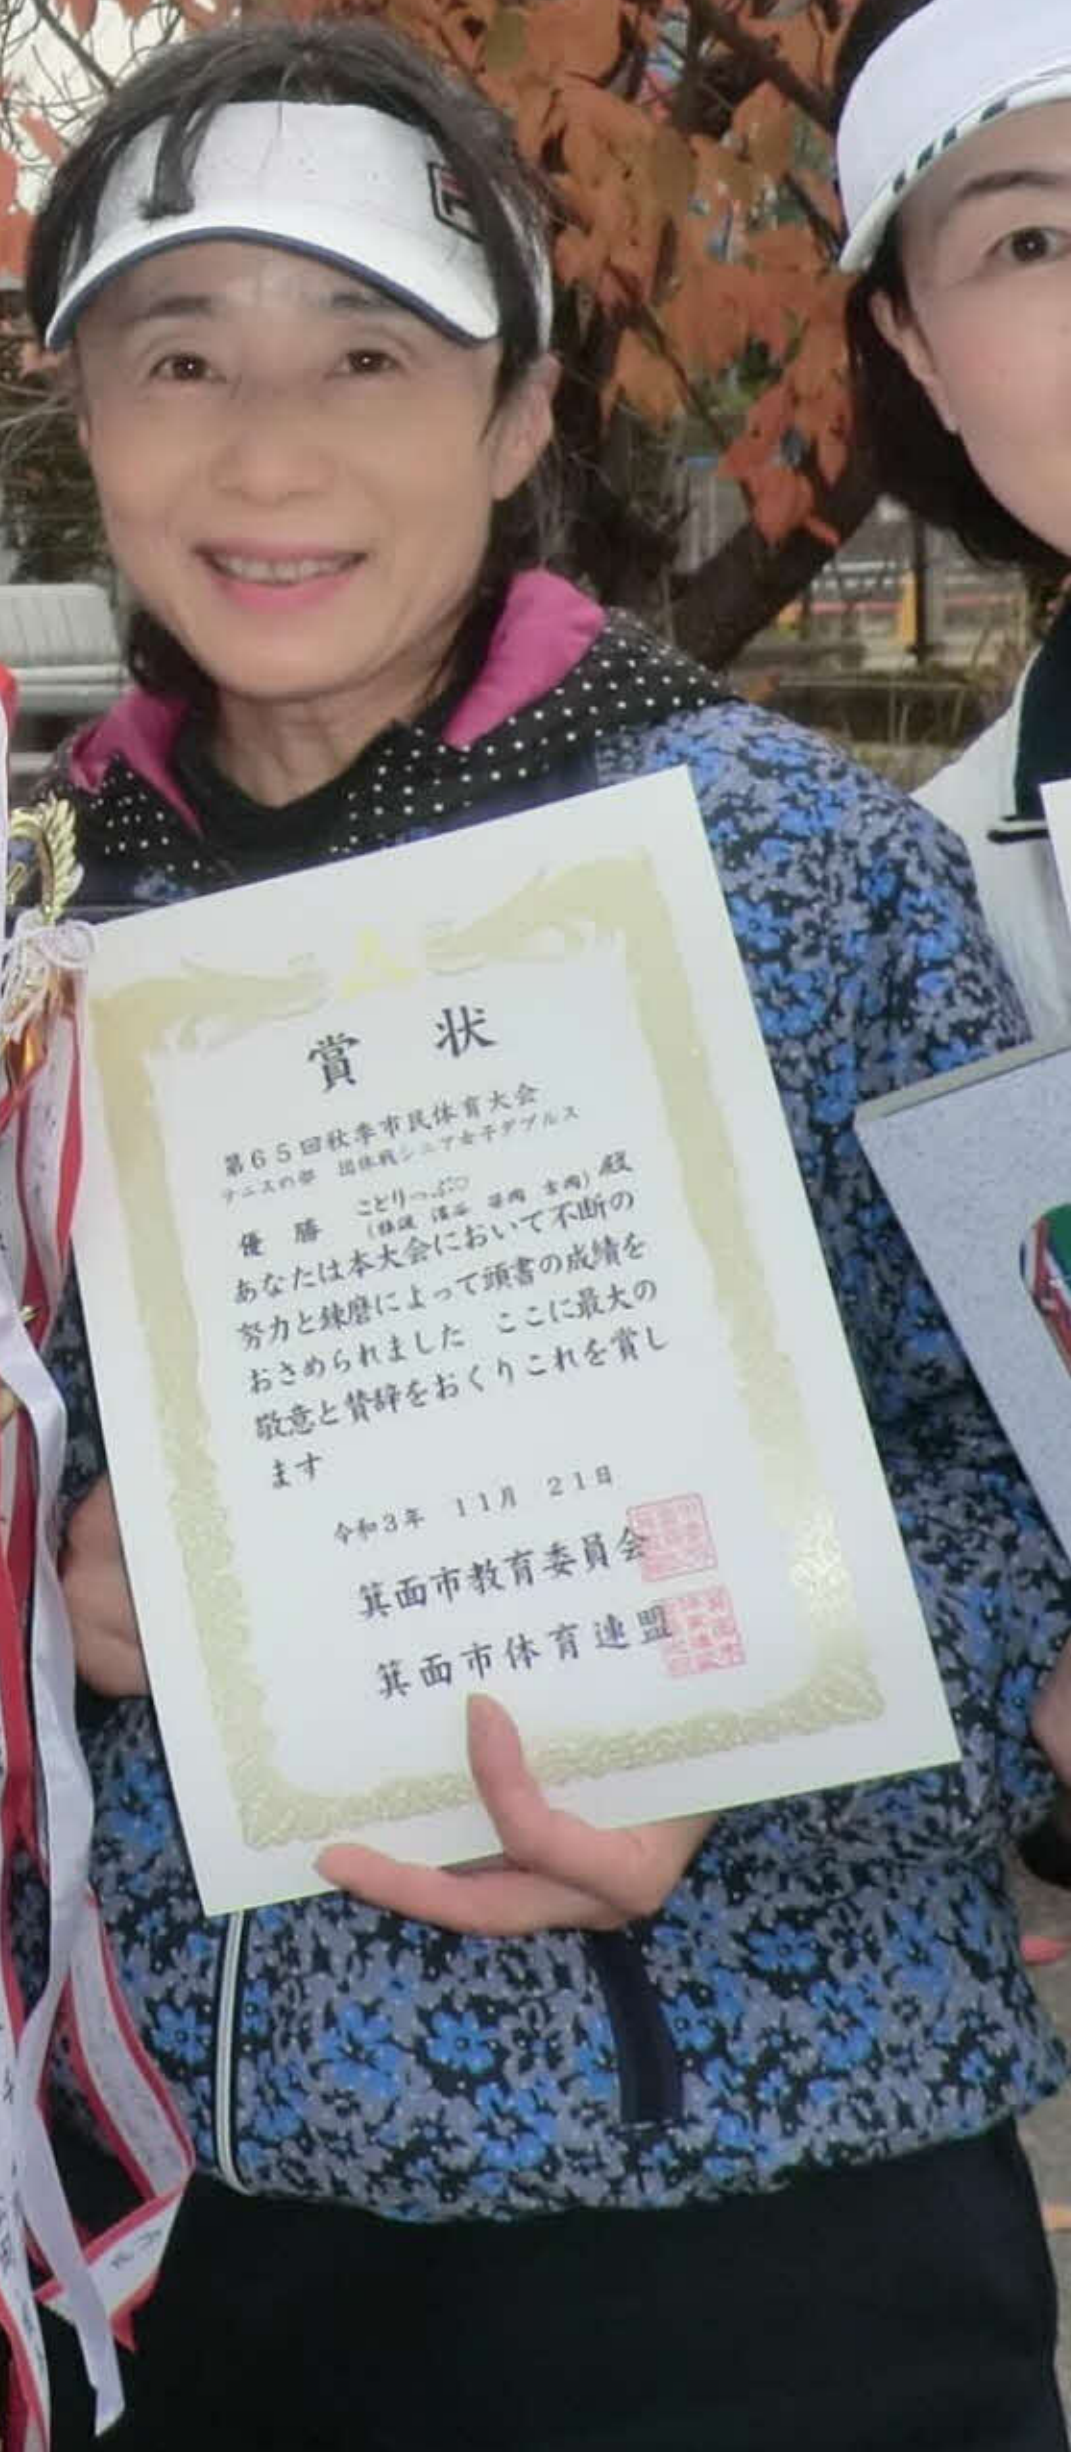 賞 状
第65回秋季市民体育大会
テニスの部 団体戦シニア女子ダブルス
優 勝 ことりっぷ♡
殿
あなたは本大会において不断の
努力と錬磨によって頭書の成績を
おさめられました ここに最大の
敬意と賛辞をおくりこれを賞し
ます
令和3年 11月 21日
箕面市教育委員会
箕面市体育連盟